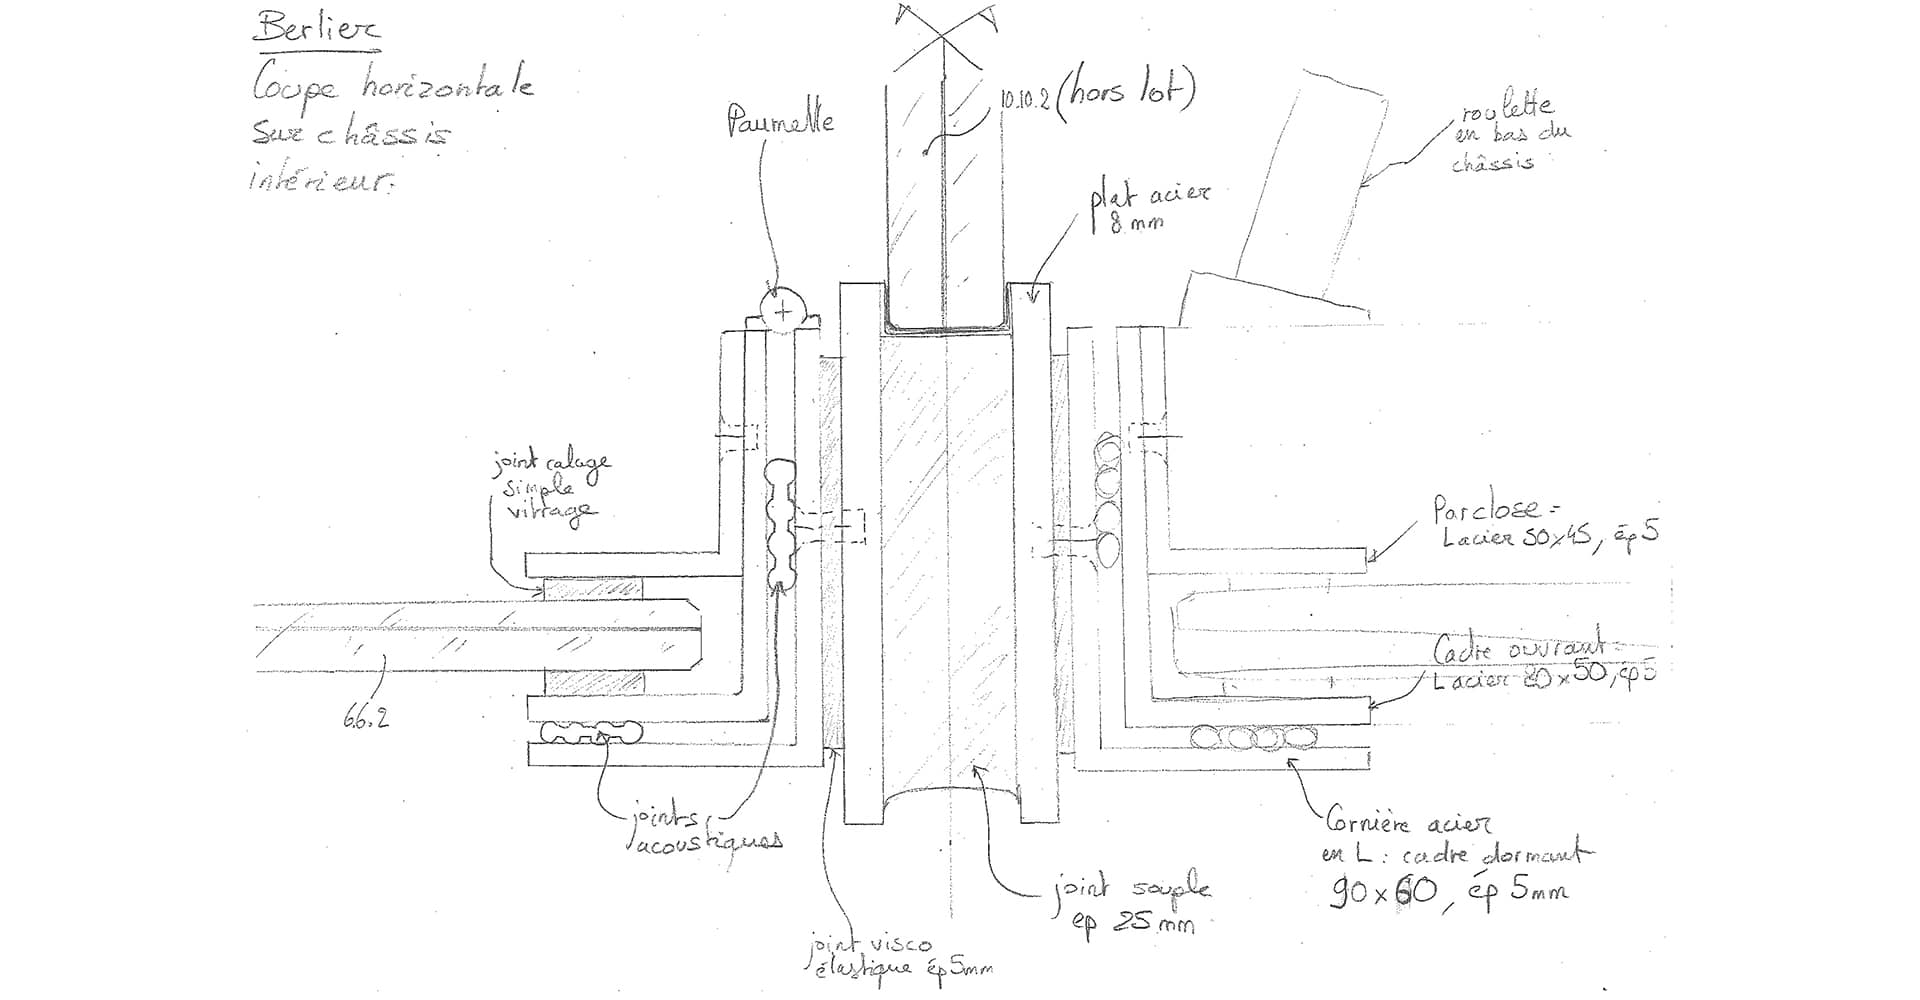 Berlier
Coupe horizontale
sur châssis
intérieur.
Paumelle
10.10.2 (hors lot)
roulette
en bas du
châssis
plat acier
8 mm
joint calage
simple
vitrage
Parclose =
L acier 50x45, ép 5
Cadre ouvrant =
L acier 80x50, ép 5
66.2
joints
acoustiques
Cornière acier
en L : cadre dormant
90x60, ép 5mm
joint souple
ep 25 mm
joint visco
élastique ép 5mm